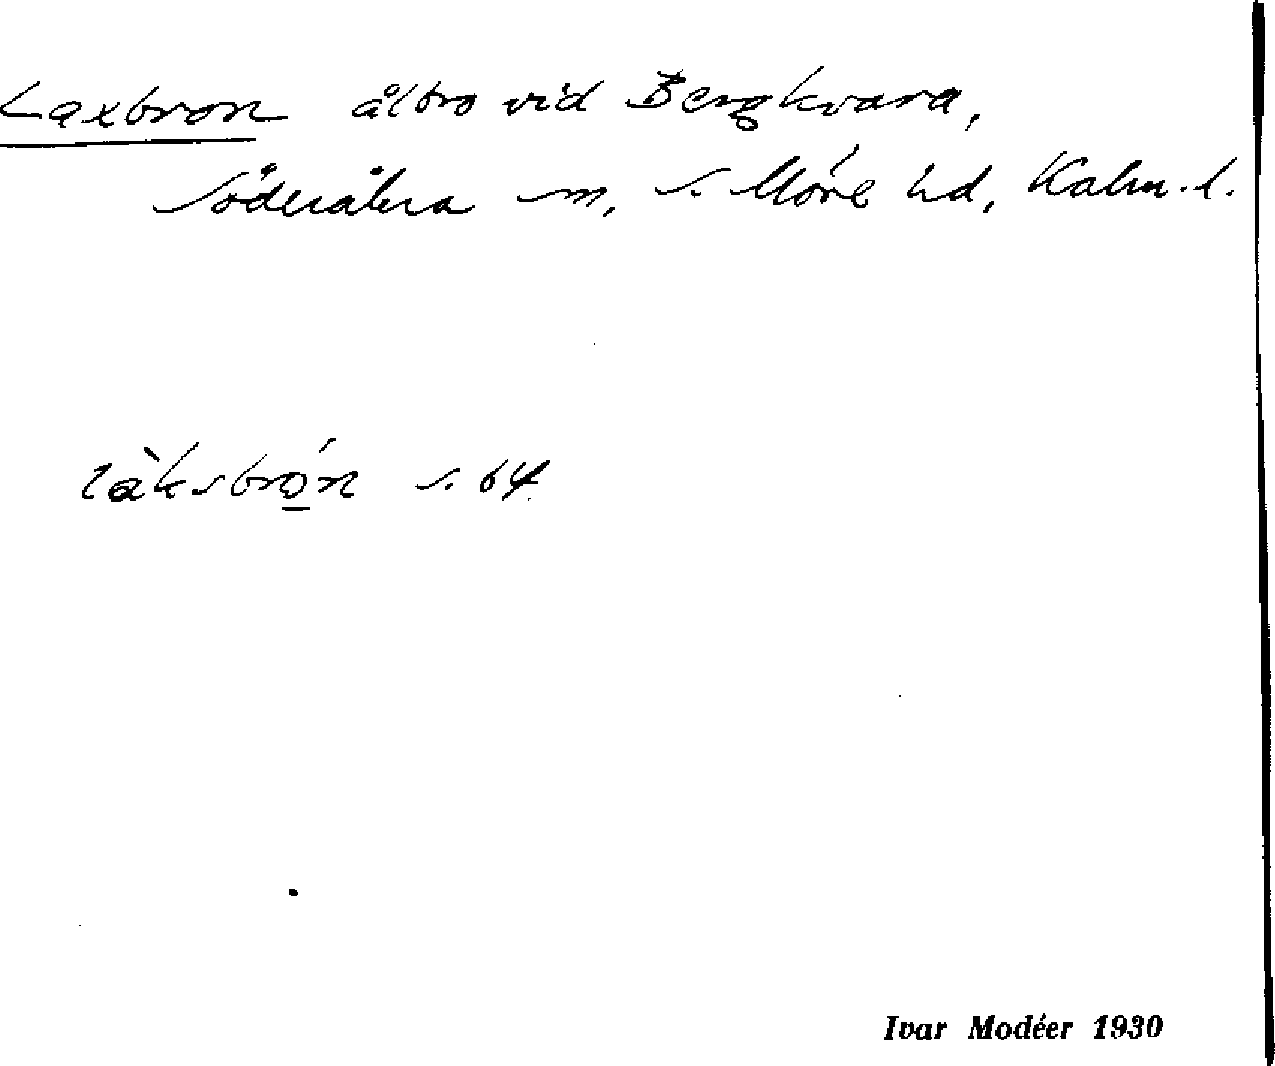 Laxbron ålbro vid Bergkvara,
Söderåkra sn, S. Möre hd, Kalm. l.
làksbrǫ́n s. 64.
Ivar Modéer 1930